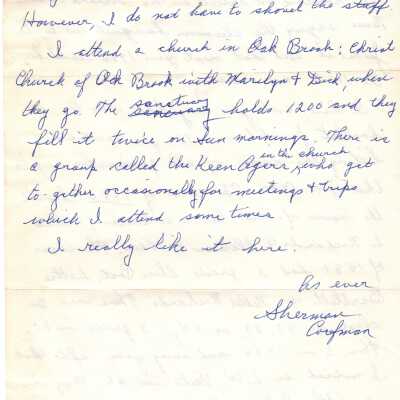 However, I do not have to shovel the stuff
I attend a church in Oak Brook; Christ
Church of Oak Brook with Marilyn & Dick, when
they go. The sanctuary holds 1200 and they
fill it twice on Sun mornings. There is
a group called the Keen Agers in the church, who get
to-gether occasionally for meetings & trips
which I attend some times.
I really like it here.
As ever
Sherman
Corfman